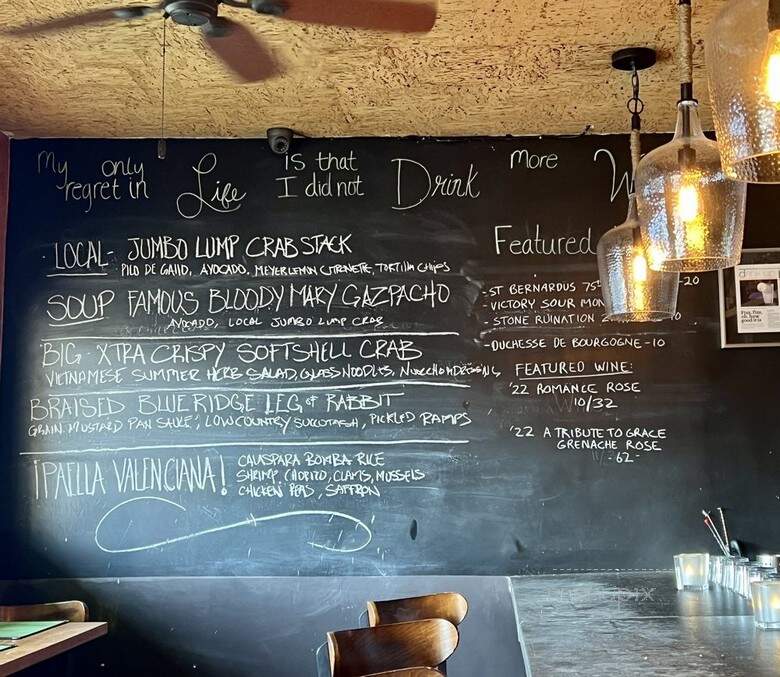 My only regret in Life is that I did not Drink more
LOCAL - JUMBO LUMP CRAB STACK
PICO DE GALLO, AVOCADO, MEYER LEMON VINAIGRETTE, TORTILLA CHIPS
SOUP FAMOUS BLOODY MARY GAZPACHO
AVOCADO, LOCAL JUMBO LUMP CRAB
BIG XTRA CRISPY SOFTSHELL CRAB
VIETNAMESE SUMMER HERB SALAD, GLASS NOODLES,
BRAISED BLUE RIDGE LEG of RABBIT
GRAIN MUSTARD PAN SAUCE, LOWCOUNTRY SUCCOTASH, PICKLED RAMPS
¡PAELLA VALENCIANA!
CALASPARA BOMBA RICE
SHRIMP, CHORIZO, CLAMS, MUSSELS
CHICKEN PEAS, SAFFRON
Featured
- ST BERNARDUS 75th -20
- VICTORY SOUR
- STONE RUINATION
- DUCHESSE DE BOURGOGNE - 10
FEATURED WINE:
'22 ROMANCE ROSE
10/32
'22 A TRIBUTE TO GRACE
GRENACHE ROSE
- 62 -